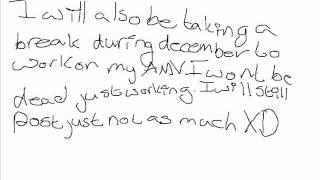 I will also be taking a
break during december to
work on my AMV I wont be
dead just working. I will still
Post just not as much XD